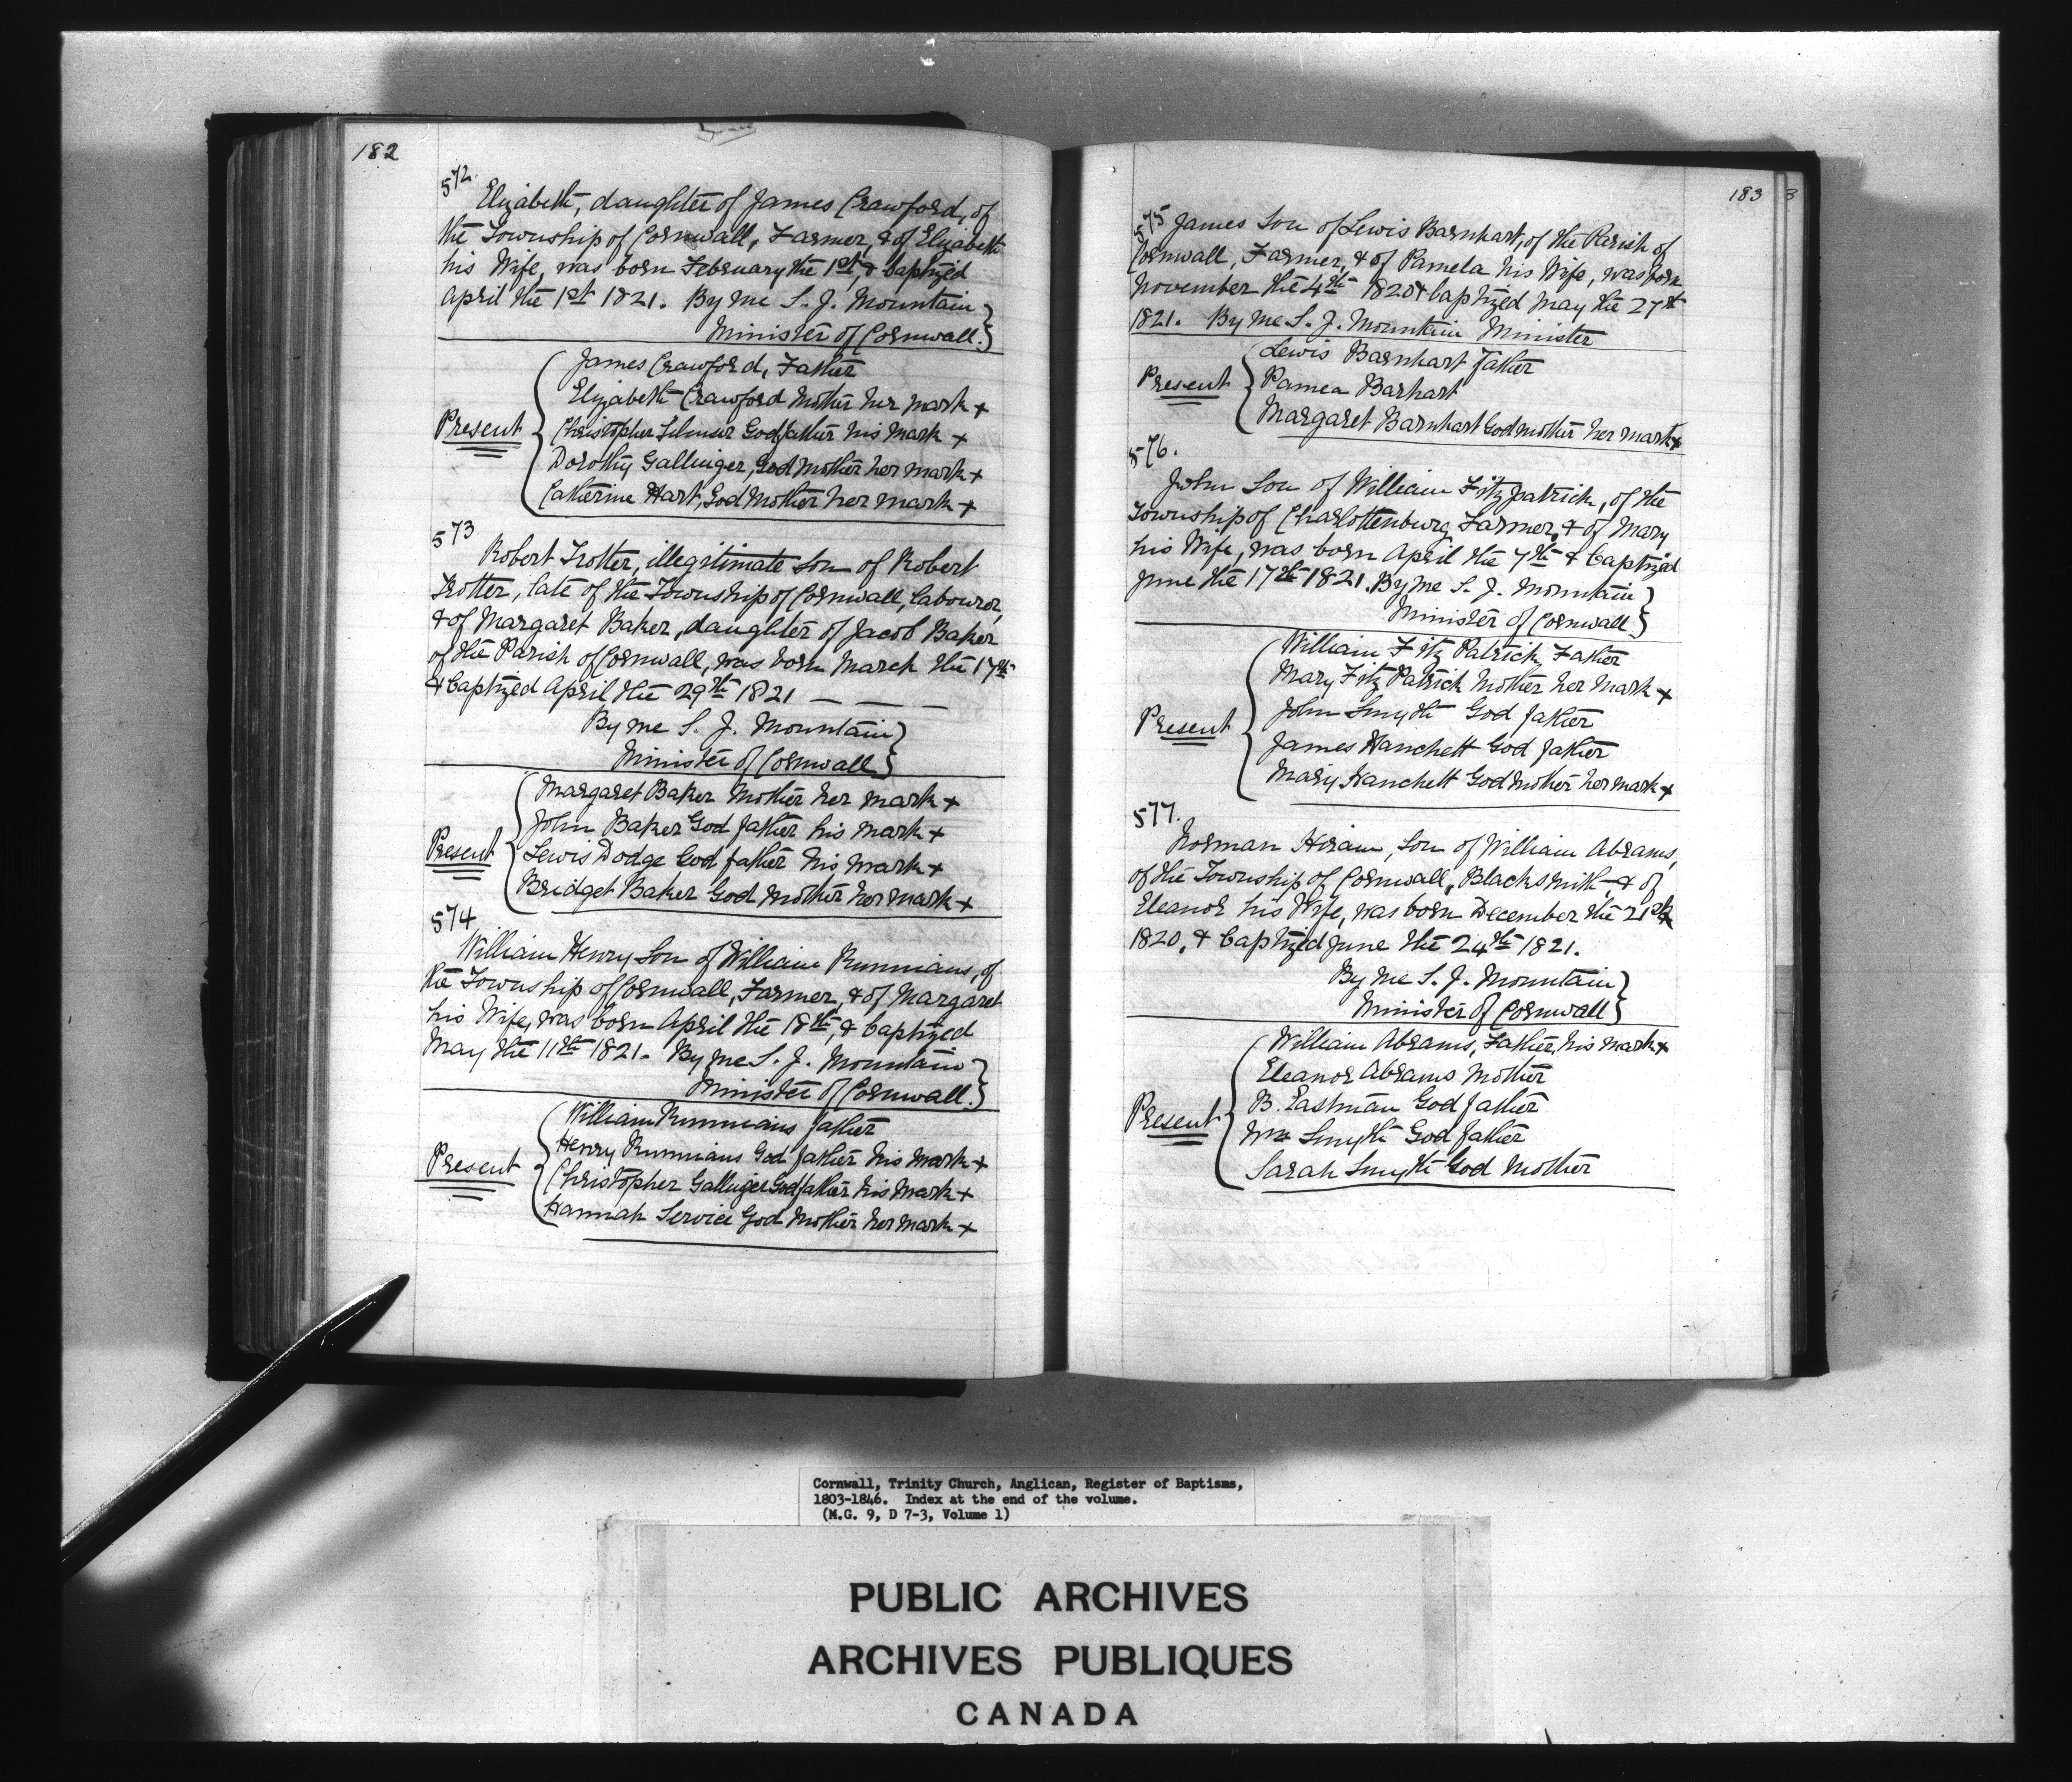 182
572.
Elizabeth, daughter of James Crawford, of
the Township of Cornwall, Farmer, & of Elizabeth
his Wife, was born February the 1st, & baptized
April the 1st 1821. By me S. J. Mountain
Minister of Cornwall.
James Crawford, Father
Elizabeth Crawford Mother her mark +
Present
Christopher Godfather his mark +
Dorothy Gallinger, God Mother her mark +
Catherine Hart, God Mother her mark +
573
Robert Trotter, illegitimate son of Robert
Trotter, late of the Township of Cornwall, labourer,
& of Margaret Baker, daughter of Jacob Baker
of the Parish of Cornwall, was born March the 17th
& baptized April the 29th 1821 — — —
By me S. J. Mountain
Minister of Cornwall
Margaret Baker Mother her mark +
John Baker God father his mark +
Present
Lewis Dodge God father his mark +
Bridget Baker God Mother her mark +
574
William Henry Son of William Runnians, of
the Township of Cornwall, Farmer, & of Margaret
his Wife, was born April the 18th, & baptized
May the 11th 1821. By me S. J. Mountain
Minister of Cornwall.
William Runnians father
Henry Runnians God father his mark +
Present
Christopher Gallinger Godfather his mark +
Hannah Service God Mother her mark +
183
3
575 James Son of Lewis Barnhart, of the Parish of
Cornwall, Farmer, & of Pamela his Wife, was born
November the 4th 1820 & baptized May the 27th
1821. By me S. J. Mountain Minister
Lewis Barnhart father
Present
Pamea Barhart
Margaret Barnhart Godmother her mark +
576.
John Son of William Fitzpatrick, of the
Township of Charlottenburg, Farmer, & of Mary
his Wife, was born April the 7th & baptized
June the 17th 1821. By me S. J. Mountain
Minister of Cornwall
William Fitz Patrick, Father
Mary Fitz Patrick Mother her mark +
Present
John Smyth God father
James Hanchett God father
Mary Hanchett God Mother her mark +
577.
Norman Hiram, Son of William Abrams,
of the Township of Cornwall, Blacksmith, & of
Eleanor his Wife, was born December the 21st
1820, & baptized June the 24th 1821.
By me S. J. Mountain
Minister of Cornwall
William Abrams, Father, his mark +
Eleanor Abrams Mother
B. Eastman God father
Present
Wm Smyth God father
Sarah Smyth God Mother
Cornwall, Trinity Church, Anglican, Register of Baptisms,
1803-1846. Index at the end of the volume.
(M.G. 9, D 7-3, Volume 1)
PUBLIC ARCHIVES
ARCHIVES PUBLIQUES
CANADA